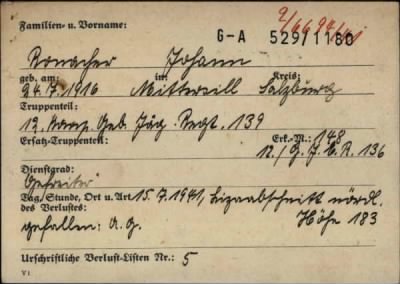 Familien- u. Vorname:
2/66 94/
G-A 529/1180
Ronacher Johann
geb. am: in: Kreis:
24.7.1916 Mittersill Salzburg
Truppenteil:
12. Komp. Geb. Jäg. Regt. 139
Ersatz-Truppenteil: Erk.-M.: 148
12./G.J.E.R. 136
Dienstgrad:
Gefreiter
Tag, Stunde, Ort u. Art 15.7.1941, Lizaabschnitt nördl.
des Verlustes: Höhe 183
gefallen: A.G.
Urschriftliche Verlust-Listen Nr.: 5
V1